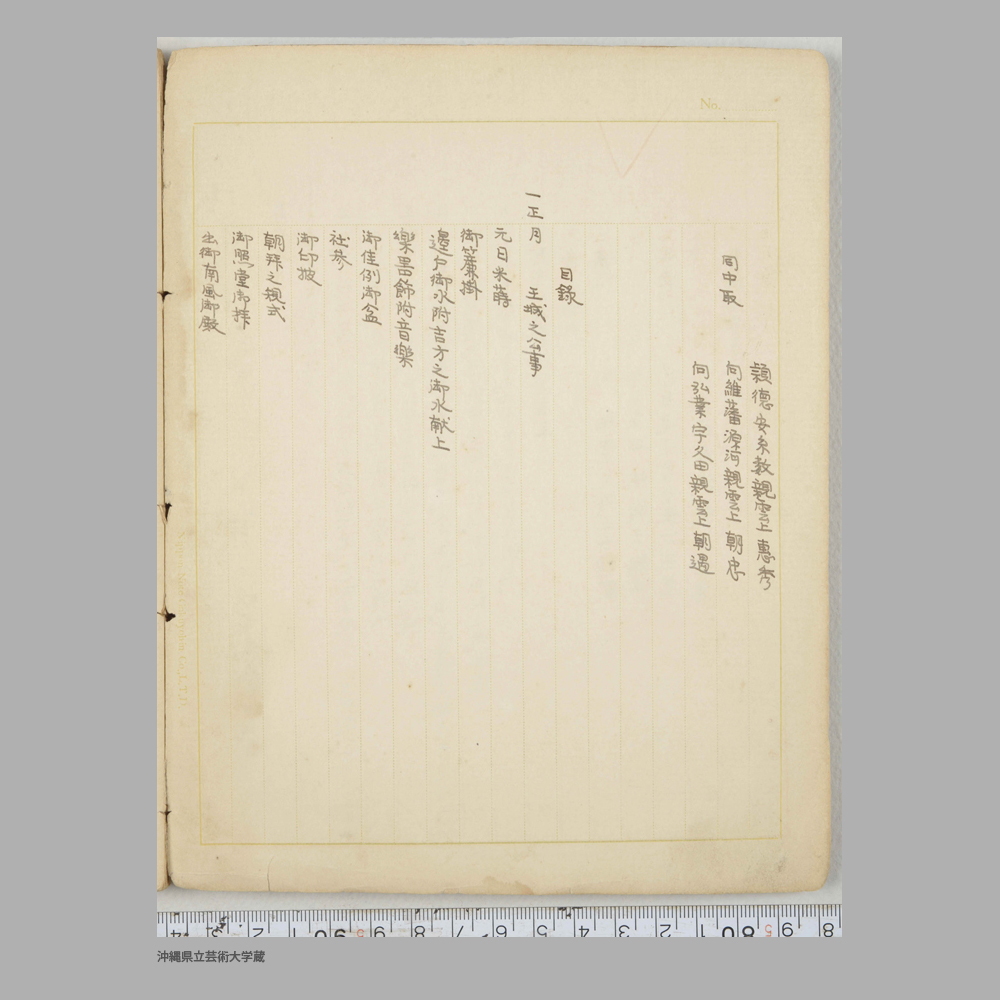 No.
毓德安糸数親雲上惠秀
同中取
向維藩源河親雲上朝忠
向弘業宇久田親雲上朝遇
目錄
一正月 王城之公事
元日米蒔
御簾掛
邊戶御水附吉方之御水献上
樂器餝附音樂
御佳例御盆
社參
御印披
朝拜之規式
御照堂御拝
出御南風御殿
沖縄県立芸術大学蔵